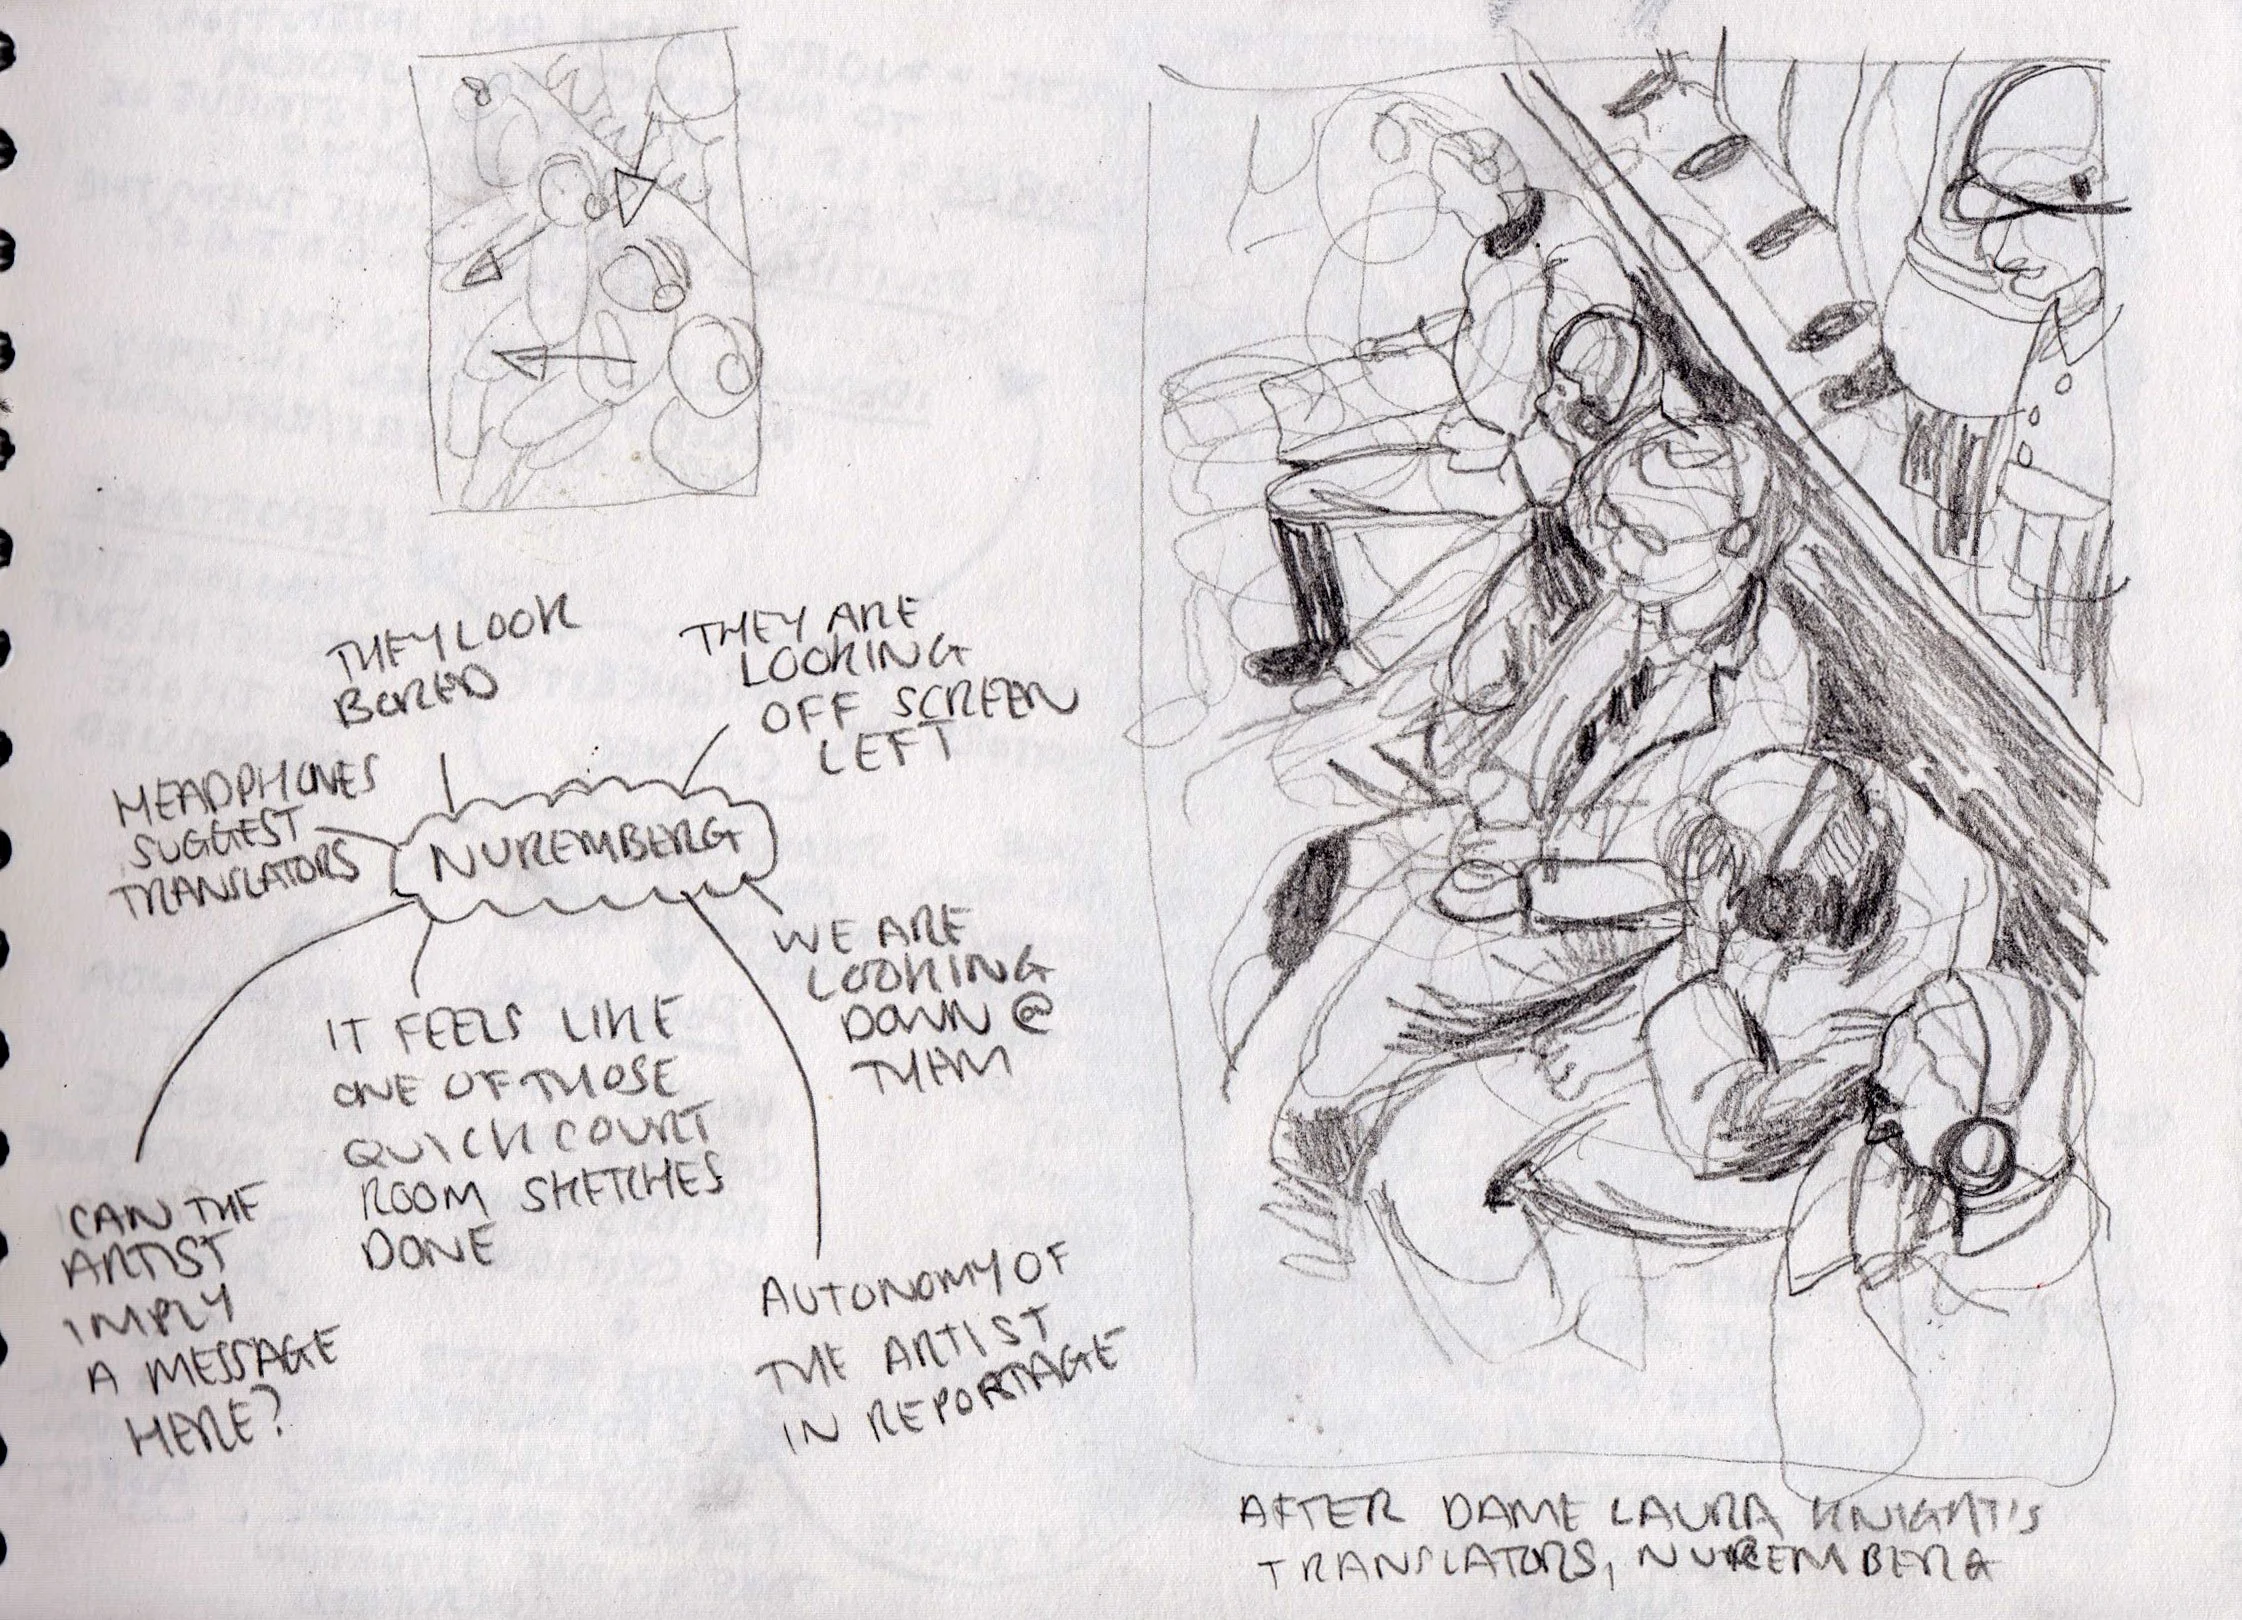 THEY LOOK
BORED
THEY ARE
LOOKING
OFF SCREEN
LEFT
HEADPHONES
SUGGEST
TRANSLATORS
NUREMBERG
WE ARE
LOOKING
DOWN @
THEM
IT FEELS LIKE
ONE OF THOSE
QUICK COURT
ROOM SKETCHES
DONE
CAN THE
ARTIST
IMPLY
A MESSAGE
HERE?
AUTONOMY OF
THE ARTIST
IN REPORTAGE
AFTER DAME LAURA KNIGHT'S
TRANSLATORS, NUREMBERG